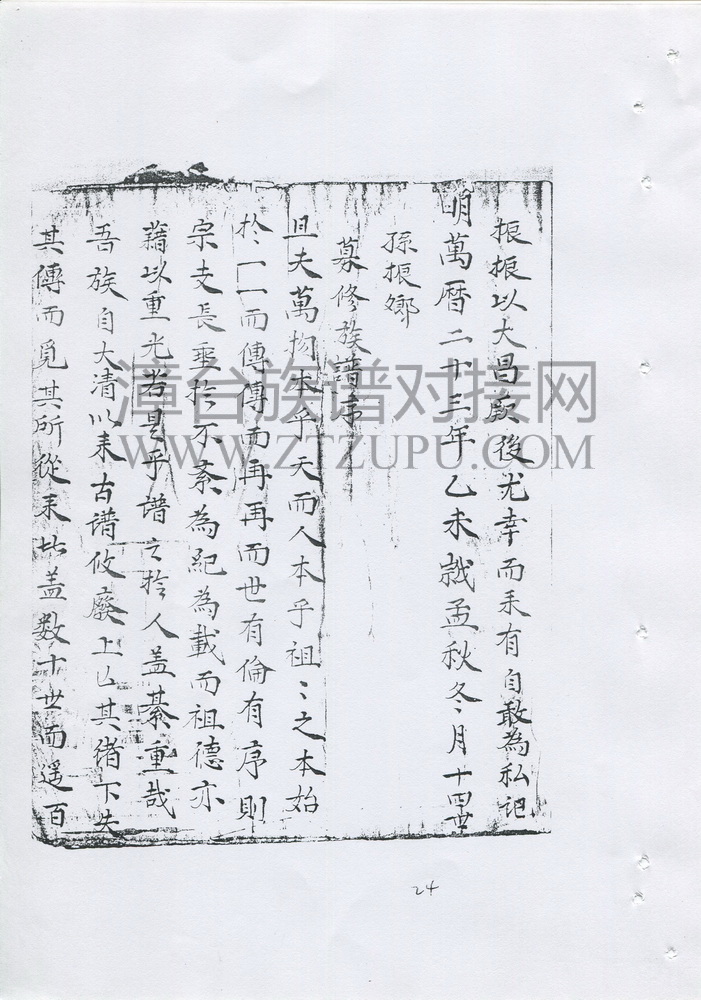 振振以大昌厥後尤幸而来有自敢為私記
明萬曆二十三年乙未歲孟秋冬月十四世
孫振鄉
募修族譜序
且夫萬物本乎天而人本乎祖〻之本始
於一一而傳傳而再再而世有倫有序則
宗支長垂於不紊為紀為載而祖德亦
藉以重光若是乎谱之於人盖綦重哉
吾族自大清以来古谱攸廢上亡其緒下失
其傳而覓其所從来此盖数十世而遥百
漳台族谱对接网
WWW.ZTZUPU.COM
24